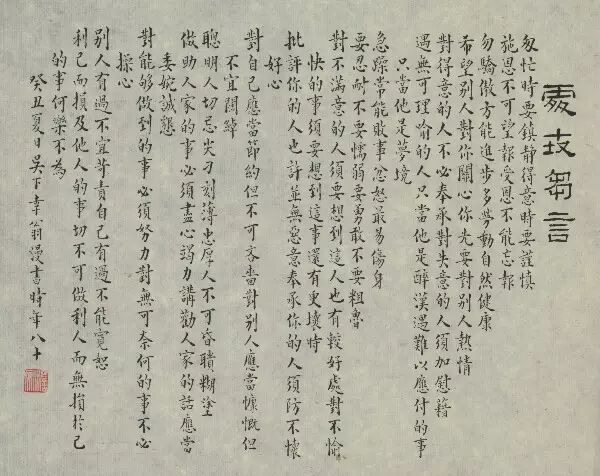 處世芻言
匆忙時要鎮靜得意時要謹慎
施恩不可望報受恩不能忘報
勿驕傲方能進步多勞動自然健康
希望別人對你關心你先要對別人熱情
對得意的人不必奉承對失意的人須加慰藉
遇無可理喻的人只當他是醉漢遇難以應付的事
只當他是夢境
急躁常能敗事忿怒最易傷身
要忍耐不要懦弱要勇敢不要粗魯
對不滿意的人須要想到這人也有較好處對不愉
快的事須要想到這事還有更壞時
批評你的人也許並無惡意奉承你的人須防不懷
好心
對自己應當節約但不可吝嗇對別人應當慷慨但
不宜闊綽
聰明人切忌尖刁刻薄忠厚人不可昏聵糊塗
做助人家的事必須盡心竭力講勸人家的話應當
委婉誠懇
對能够做到的事必須努力對無可奈何的事不必
操心
別人有過不宜苛責自己有過不能寬恕
利己而損及他人的事切不可做利人而無損於己
的事何樂不為
癸丑夏日吳下幸翁漫書時年八十